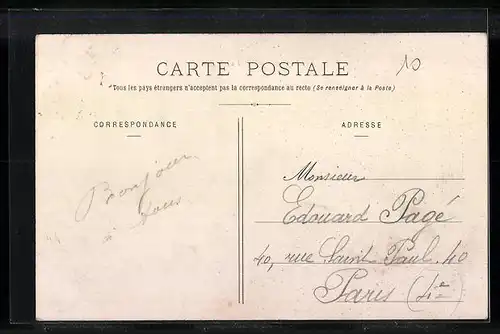 CARTE POSTALE
10
Tous les pays étrangers n'acceptent pas la correspondance au recto (Se renseigner à la Poste)
CORRESPONDANCE
Bonjour
à tous
ADRESSE
Monsieur
Edouard Pagé
40, rue Saint Paul. 40
Paris (4e)